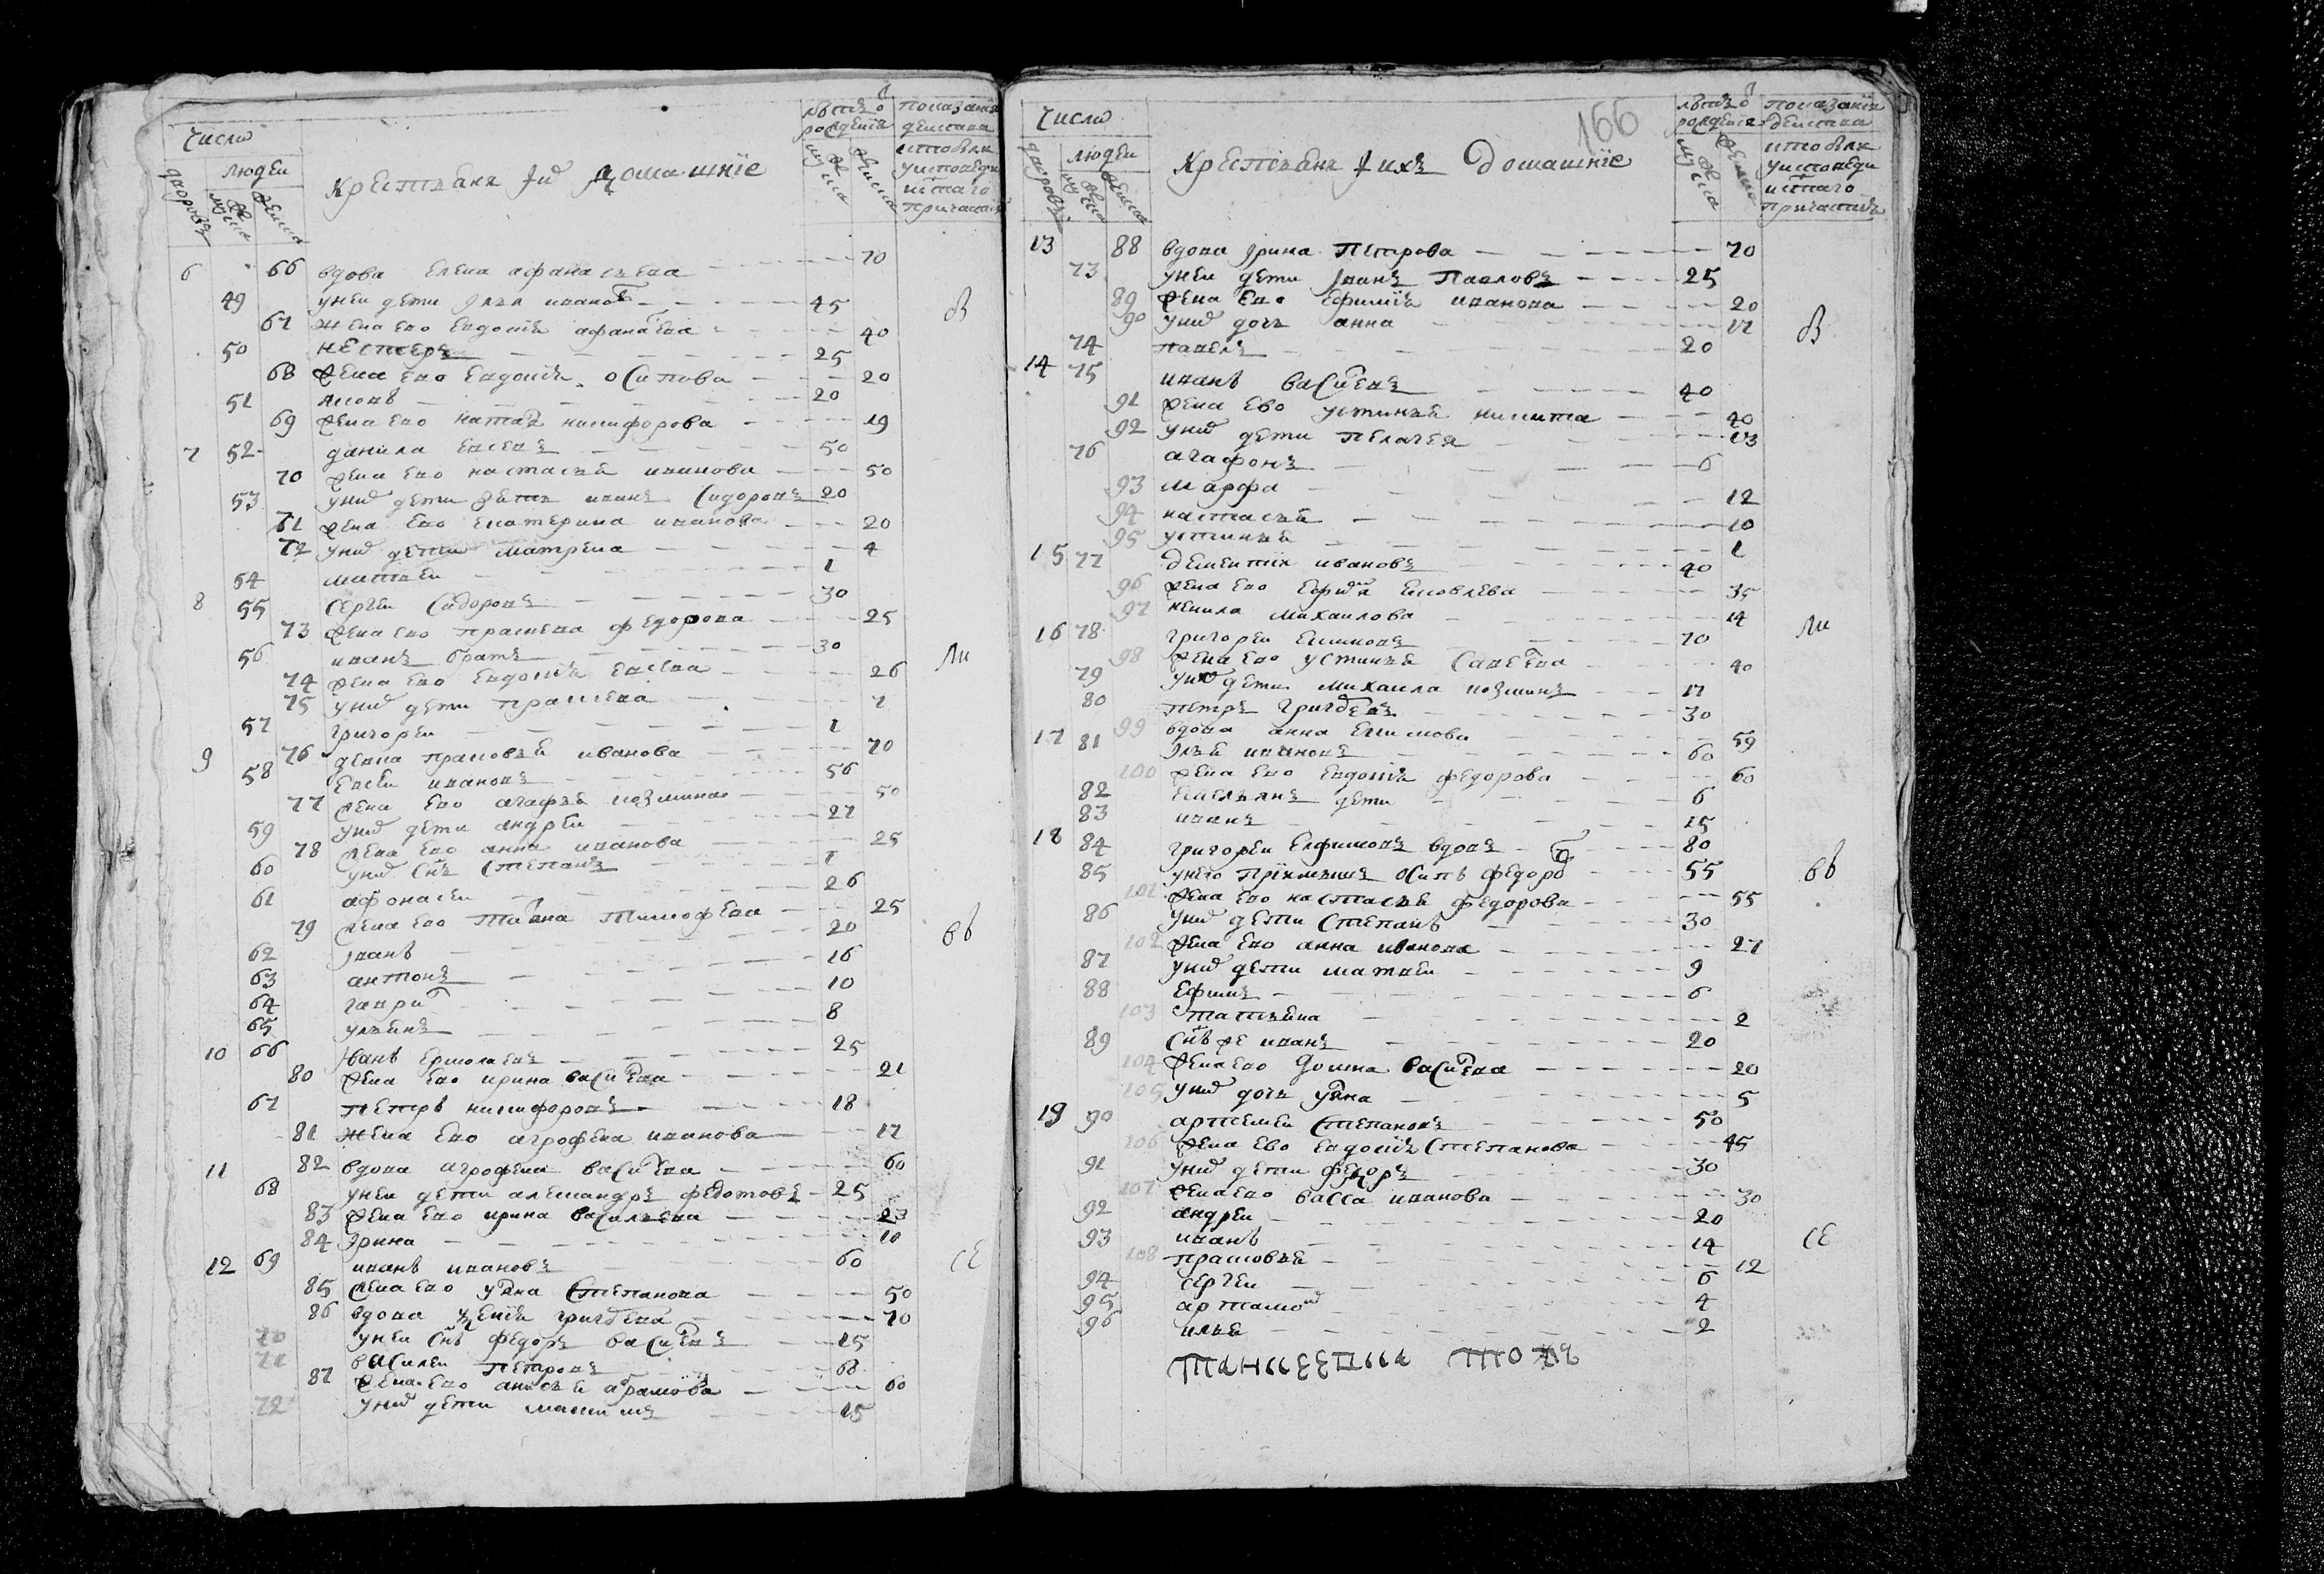 Число
людеи
дворовъ
мужеска
женска
крестьяня и их домашние
лътъ о
рождения
мужеска
женска
показание
действа
кто былъ
у исповеди
и с таго
причастия
6 66 вдова елена афанасьева 70
49 у неи дети илья иванов 45
67 жена ево евдокия афанасева 40
50 нестеръ 25
68 жена ево евдокия осипова 20
51 яковъ 20
69 жена ево наталя никифорова 19
7 52 данила евсевъ 50
70 жена ево настасья иванова 50
53 у них дети зять иванъ сидоровъ 20
71 жена ево екатерина иванова 20
72 у них дети матрена 4
54 матвеи 1
8 55 сергеи сидоровъ 30
73 жена ево прасковя федорова 25
56 иванъ братъ 30
74 жена ево евдокия евсева 26
75 у них дети 7
57 григореи 1
9 76 девка прасковья иванова 70
58 евсеи ивановъ 56
77 жена ево агафья козмина 50
59 у них дети андреи 27
78 жена ево анна иванова 25
60 у них снъ степанъ 1
61 афонасеи 26
79 жена ево татяна тимофева 25
62 иванъ 20
63 антонъ 16
64 гаврил 10
65 ульянъ 8
10 66 иванъ ермолаевъ 25
80 жена ево ирина василева 21
67 петръ никифоровъ 18
81 жена ево агрофена иванова 17
11 82 вдова агрофена василева 60
68 у неи дети александръ федотовъ 25
83 жена ево ирина васильева 23
84 ирина 10
12 69 иванъ ивановъ 60
85 жена ево уляна степанова 50
86 вдова григорева 70
70 у неи снъ федоръ василевъ 15
71 василеи петровъ 68
87 жена ево анисья абрамова 60
72 у них дети максимъ 15
в
ли
вѣ
се
166
Число
людеи
дворовъ
мужеска
женска
крестьяня и ихъ домашние
лътъ о
рождения
мужеска
женска
показания
действа
кто былъ
у исповеди
и с таго
причастия
13 88 вдова ирина петрова 70
73 у неи дети иванъ павловъ 25
89 жена ево ефимия иванова 20
90 у них дочь анна 17
74 павелъ 20
14 75 иванъ василевъ 40
91 жена ево устинья никита 40
92 у них дети пелагея 13
76 агафонъ 6
93 марфа 12
94 настасья 10
95 устинья 1
15 77 дементии ивановъ 40
96 жена ево яковлева 35
97 ненила михаилова 14
16 78 григореи екимовъ 70
98 жена ево устинья савелева 40
79 у них дети михаила козминъ 17
80 петръ григоревъ 30
99 вдова анна екимова 59
17 81 илья ивановъ 60
100 жена ево евдокия федорова 60
82 емельянъ дети 6
83 иванъ 15
18 84 григореи елфимовъ вдовъ 80
85 у него приимышъ осипъ федоров 55
101 жена ево настасья федорова 55
86 у них дети степанъ 30
102 жена ево анна иванова 27
87 у них дети матвеи 9
88 ефимъ 6
103 татьяна 2
89 снъ же иванъ 20
104 жена ево домна василева 20
105 у них дочь уляна 5
19 90 артемеи степановъ 50
106 жена ево евдокия степанова 45
91 у них дети федоръ 30
107 жена ево васса иванова 30
92 андреи 20
93 иванъ 14
108 прасковья 12
94 сергеи 6
95 артамон 4
96 илья 2
в
ли
вѣ
се